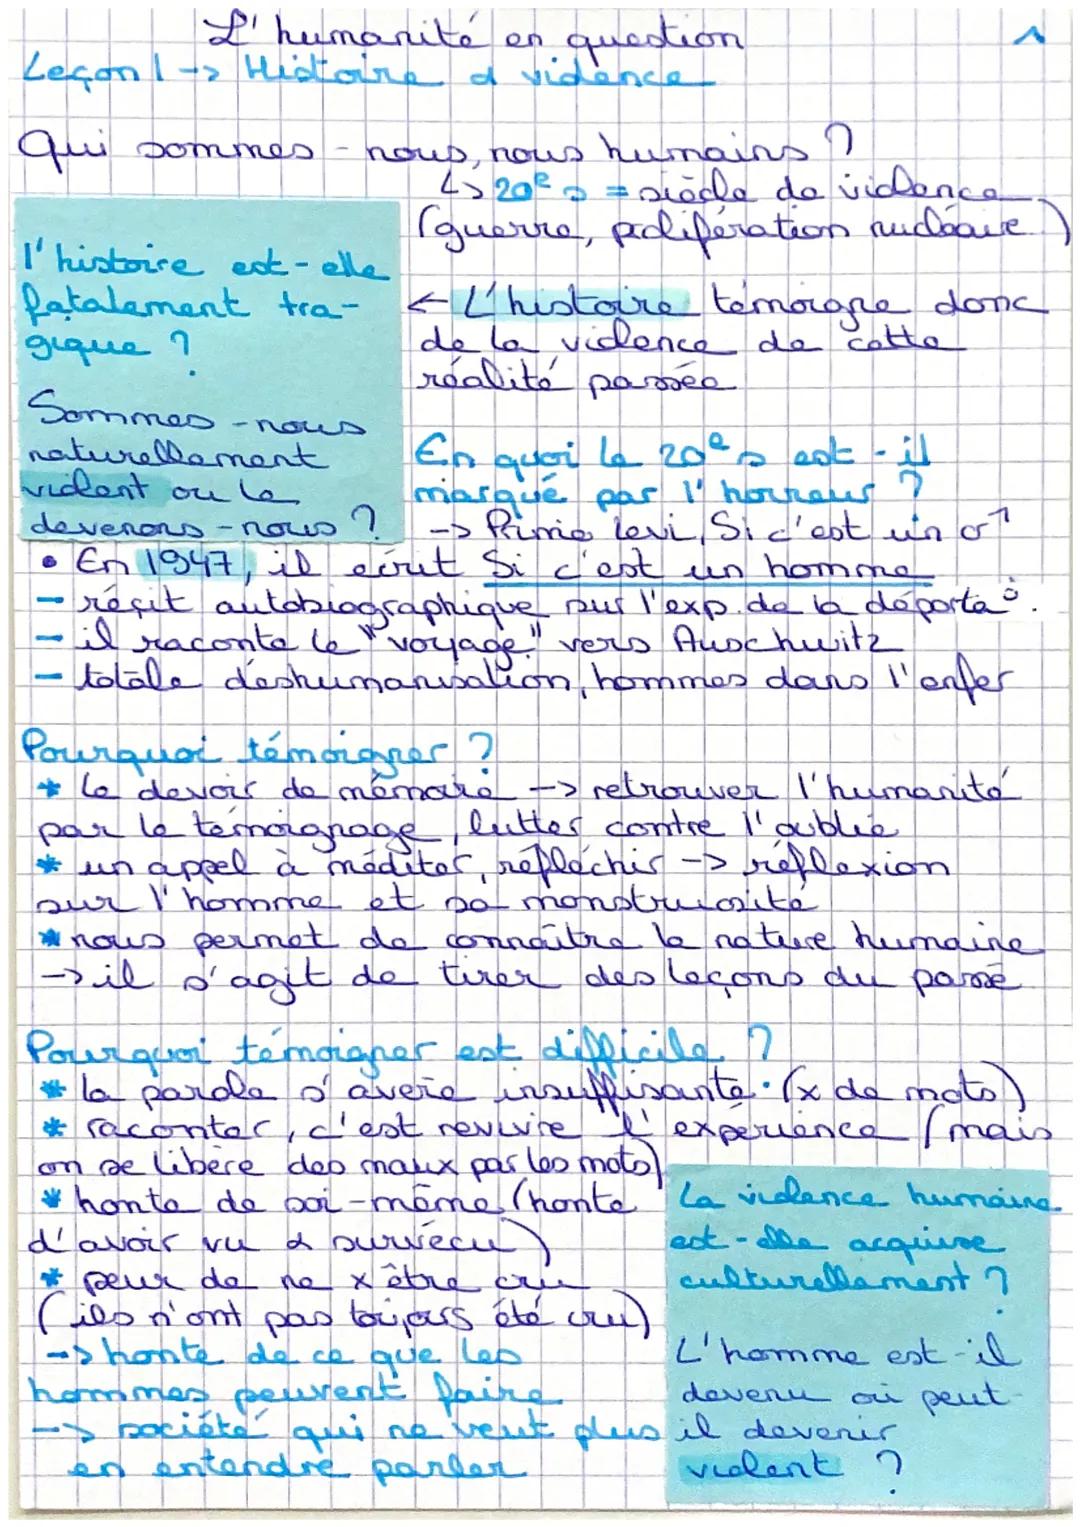 L'humanité en question
1
Leçon 1 -> Histoire & violence
Qui sommes-nous, nous humains ?
↳ 20e s = siècle de violence
(guerre, prolifération nucléaire)
l'histoire est-elle
fatalement tra-
gique ?
Sommes-nous
naturellement
violent ou le
devenons-nous ?
← L'histoire témoigne donc
de la violence de cette
réalité passée
En quoi le 20e s est-il
marqué par l'horreur ?
-> Primo Levi, Si c'est un
• En 1947, il écrit Si c'est un homme
- récit autobiographique sur l'exp. de la déporta°.
- il raconte le "voyage" vers Auschwitz
- totale déshumanisation, hommes dans l'enfer
Pourquoi témoigner ?
* le devoir de mémoire -> retrouver l'humanité
par le témoignage, lutter contre l'oublie
* un appel à méditer, réfléchir -> réflexion
sur l'homme et sa monstruosité
* nous permet de connaître la nature humaine
-> il s'agit de tirer des leçons du passé
Pourquoi témoigner est difficile ?
* la parole s'avère insuffisante. (x de mots)
* raconter, c'est revivre l'expérience (mais
on se libère des maux par les mots)
* honte de soi-même (honte
d'avoir vu & survécu)
* peur de ne x être cru
(ils n'ont pas toujours été cru)
-> honte de ce que les
hommes peuvent faire
-> société qui ne veut plus
en entendre parler
La violence humaine
est-elle acquise
culturellement ?
L'homme est-il
devenu ou peut-
il devenir
violent ?